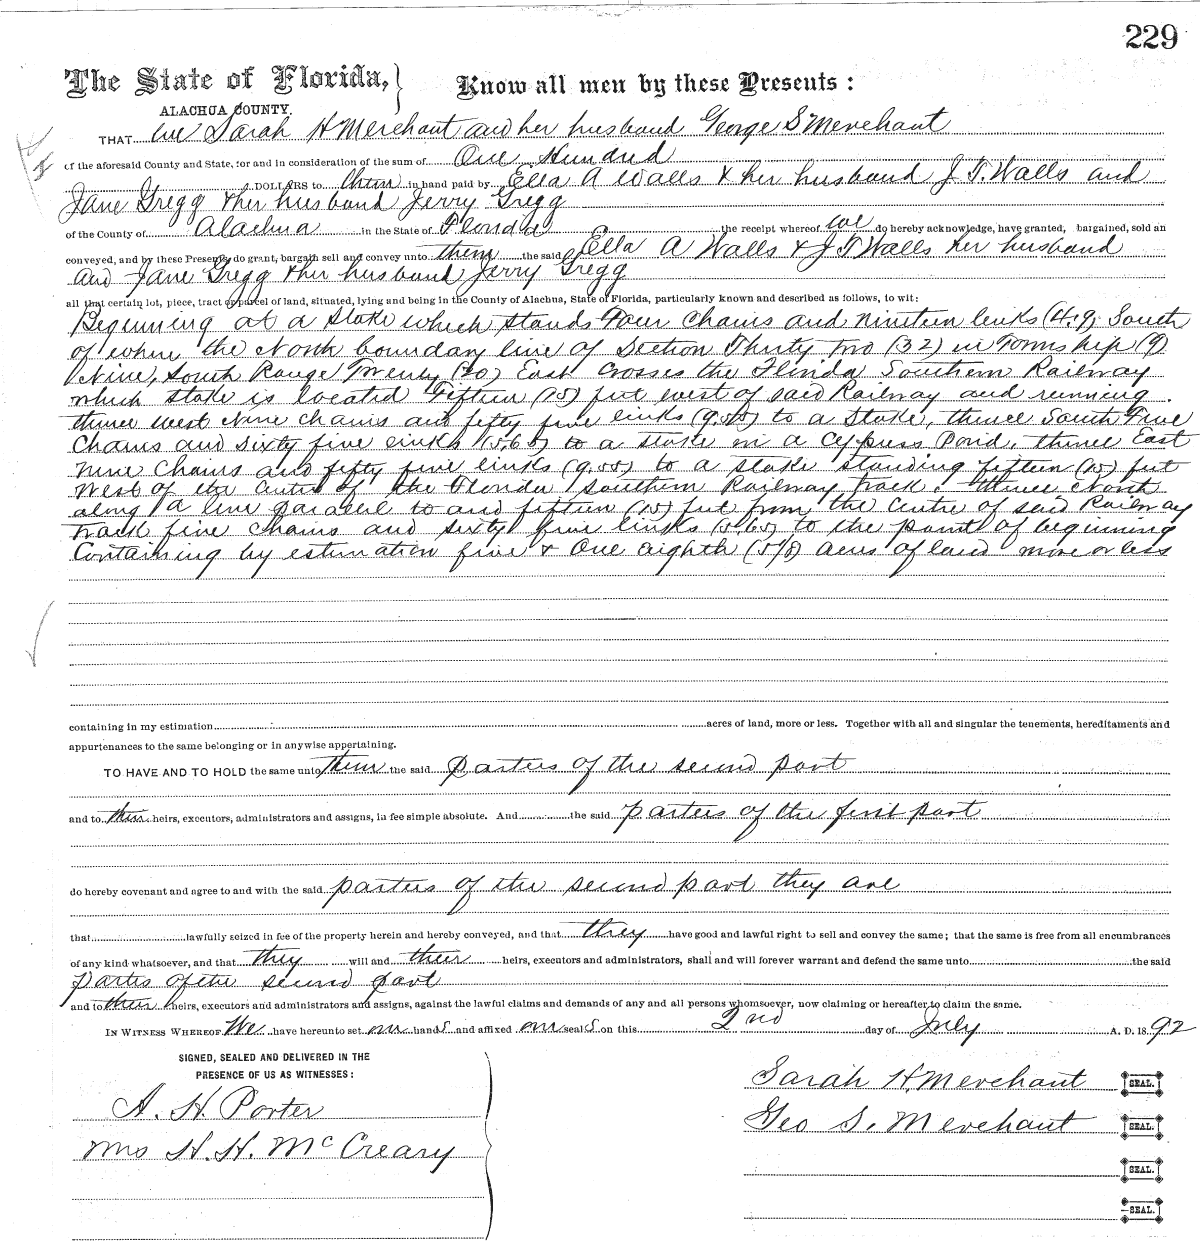 229
The State of Florida,
ALACHUA COUNTY.
Know all men by these Presents:
THAT we Sarah H Merchant and her husband George S Merchant
of the aforesaid County and State, for and in consideration of the sum of One Hundred
DOLLARS to them in hand paid by Ella A Walls & her husband J. T. Walls and
Jane Gregg & her husband Jerry Gregg
of the County of Alachua in the State of Florida the receipt whereof we do hereby acknowledge, have granted, bargained, sold an
conveyed, and by these Presents do grant, bargain sell and convey unto them the said Ella A Walls & J T Walls her husband
and Jane Gregg & her husband Jerry Gregg
all that certain lot, piece, tract or parcel of land, situated, lying and being in the County of Alachua, State of Florida, particularly known and described as follows, to wit:
Beginning at a stake which stands Four Chains and nineteen links (4.19 South
of where the North boundary line of Section Thirty two (32) in Township (9)
Nine, South Range Twenty (20) East crosses the Florida Southern Railway
which stake is located Fifteen (15) feet west of said Railway and running
thence west Nine chains and fifty five links (9.55) to a stake, thence South Five
Chains and sixty five links (5.65) to a stake in a Cypress Pond, thence East
Nine Chains and fifty five links (9.55) to a stake standing fifteen (15) feet
West of the Centre of the Florida Southern Railway track, thence North
along a line paralel to and fifteen (15) feet from the Centre of said Railway
track five chains and sixty five links (5.65) to the point of beginning
Containing by estimation five & One eighth (5 1/8) acres of land more or less
containing in my estimation acres of land, more or less. Together with all and singular the tenements, hereditaments and
appurtenances to the same belonging or in anywise appertaining.
TO HAVE AND TO HOLD the same unto them the said parties of the second part
and to their heirs, executors, administrators and assigns, in fee simple absolute. And the said parties of the first part
do hereby covenant and agree to and with the said parties of the second part they are
that lawfully seized in fee of the property herein and hereby conveyed, and that they have good and lawful right to sell and convey the same; that the same is free from all encumbrances
of any kind whatsoever, and that they will and their heirs, executors and administrators, shall and will forever warrant and defend the same unto the said
parties of the second part
and to their heirs, executors and administrators and assigns, against the lawful claims and demands of any and all persons whomsoever, now claiming or hereafter to claim the same.
IN WITNESS WHEREOF We have hereunto set our hands and affixed our seals on this 2nd day of July A. D. 1892
SIGNED, SEALED AND DELIVERED IN THE
PRESENCE OF US AS WITNESSES:
A. H. Porter
Mrs H. H. McCreary
Sarah H. Merchant SEAL.
Geo S. Merchant SEAL.
SEAL.
SEAL.